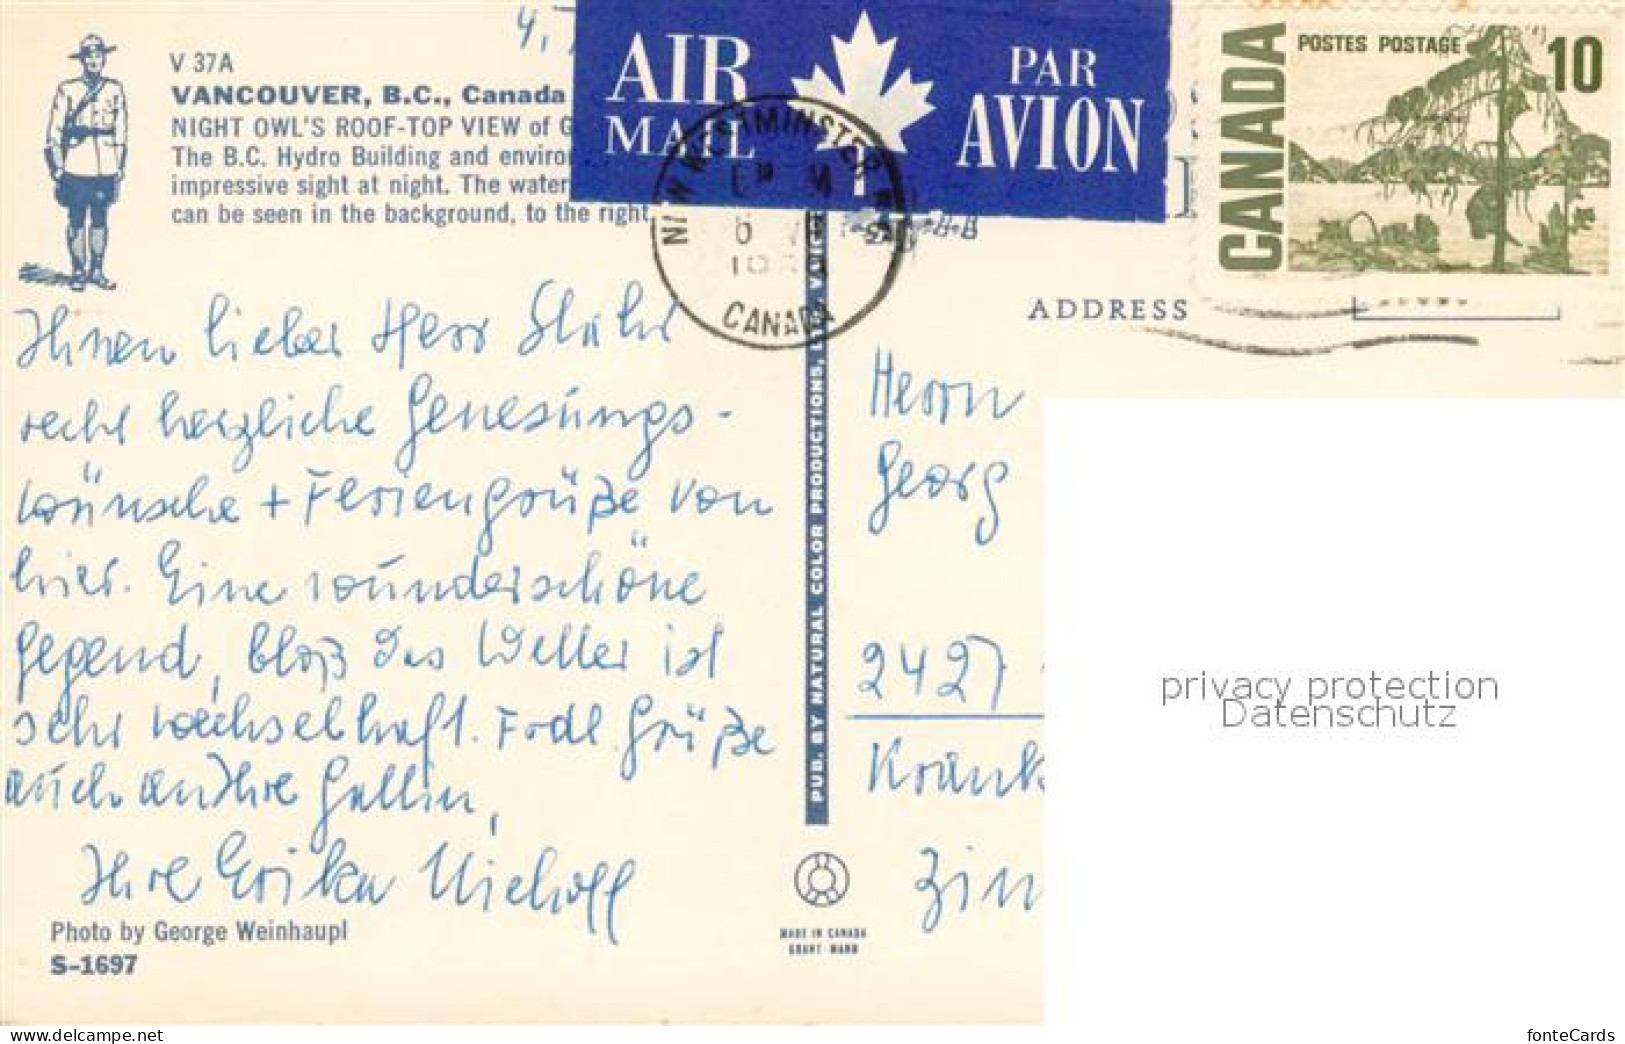 4.7
V 37A
VANCOUVER, B.C., Canada
NIGHT OWL'S ROOF-TOP VIEW of G
The B.C. Hydro Building and enviro
impressive sight at night. The water
can be seen in the background, to the right.
AIR MAIL
PAR AVION
NEW WESTMINSTER
CANADA
CANADA
POSTES POSTAGE
10
ADDRESS
Ihnen lieber Herr Stuhr
recht herzliche Genesungs-
wünsche + Feriengrüße von
hier. Eine wunderschöne
Gegend, bloß das Wetter ist
sehr wechselhaft. Frdl. Grüße
auch an Ihre Gattin,
Ihre Erika Niehoff
Photo by George Weinhaupl
S-1697
PUB. BY NATURAL COLOR PRODUCTIONS, LTD. VANC
MADE IN CANADA
GRANT-MANN
Herrn
Georg
2427
Krank
Zin
privacy protection
Datenschutz
www.delcampe.net
fonteCards